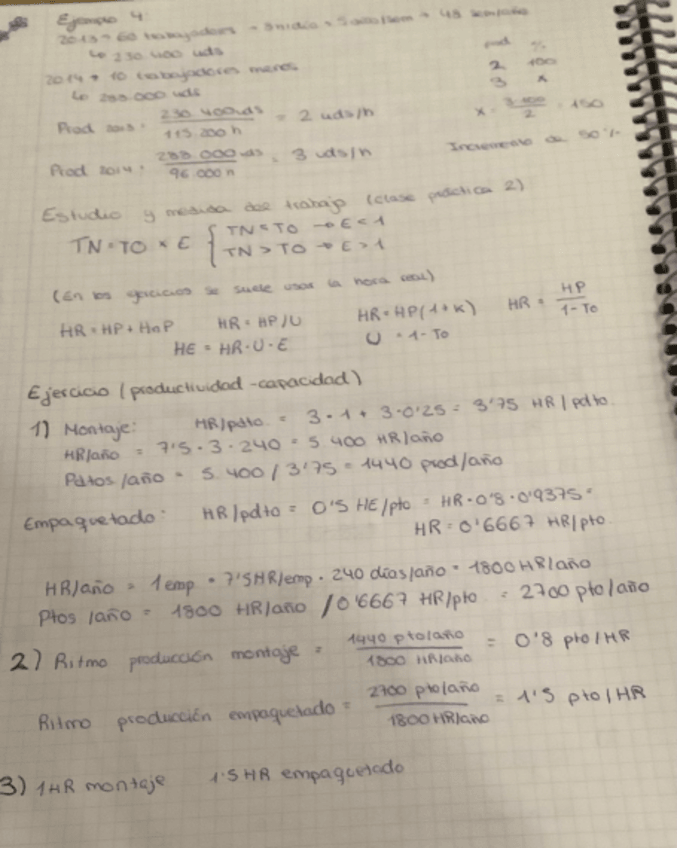 Ejemplo 4:
2013 → 60 trabajadores → 8h/día → 5 días/sem → 48 sem/año
↳ 230.400 uds
2014 → 10 trabajadores menos
↳ 288.000 uds
Prod 2013: 230.400 uds / 115.200 h = 2 uds/h
Prod 2014: 288.000 uds / 96.000 h = 3 uds/h
prod %
2 100
3 x
x = 3·100 / 2 = 150
Incremento de 50%
Estudio y medida del trabajo (clase práctica 2)
TN = TO × E { TN < TO → E < 1
TN > TO → E > 1
(En los ejercicios se suele usar la hora real)
HR = HP + HnP HR = HP/U HR = HP(1+K) HR = HP / 1-To
HE = HR·U·E U = 1-To
Ejercicio (productividad-capacidad)
1) Montaje: HR/pdto. = 3·1 + 3·0'25 = 3'75 HR/pdto.
HR/año = 7'5·3·240 = 5.400 HR/año
Pdtos/año = 5.400 / 3'75 = 1440 prod/año
Empaquetado: HR/pdto = 0'5 HE/pto = HR·0'8·0'9375 =
HR = 0'6667 HR/pto.
HR/año = 1emp · 7'5HR/emp · 240 días/año = 1800 HR/año
Ptos /año = 1800 HR/año / 0'6667 HR/pto = 2700 pto/año
2) Ritmo producción montaje = 1440 pto/año / 1800 HR/año = 0'8 pto/HR
Ritmo producción empaquetado = 2700 pto/año / 1800 HR/año = 1'5 pto/HR
3) 1HR montaje 1'5 HR empaquetado